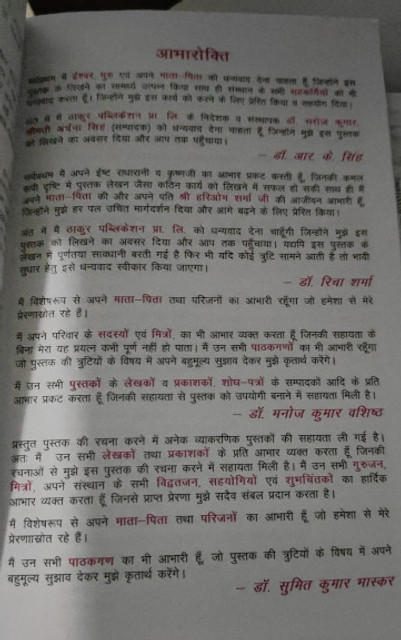 आभारोक्ति
सर्वप्रथम मैं ईश्वर, गुरु एवं अपने माता-पिता को धन्यवाद देना चाहता हूँ जिन्होंने इस
पुस्तक के लिखने का सामर्थ्य उत्पन्न किया साथ ही संस्थान के सभी सहकर्मियों का भी
धन्यवाद करता हूँ। जिन्होंने मुझे इस कार्य को करने के लिए प्रेरित किया व सहयोग दिया।
अंत में मैं ठाकुर पब्लिकेशन प्रा. लि. के निदेशक व संस्थापक डॉ. सरोज कुमार,
श्रीमती अर्चना सिंह (सम्पादक) को धन्यवाद देना चाहता हूँ जिन्होंने मुझे इस पुस्तक
को लिखने का अवसर दिया और आप तक पहुँचाया।
– डॉ. आर. के. सिंह
सर्वप्रथम मैं अपने ईष्ट राधारानी व कृष्णजी का आभार प्रकट करती हूँ, जिनकी कमल
रूपी दृष्टि में पुस्तक लेखन जैसा कठिन कार्य को लिखने में सफल हो सकी साथ ही मैं
अपने माता-पिता की और अपने पति श्री हरिओम शर्मा जी की आजीवन आभारी हूँ,
जिन्होंने मुझे हर पल उचित मार्गदर्शन दिया और आगे बढ़ने के लिए प्रेरित किया।
अंत में मैं ठाकुर पब्लिकेशन प्रा. लि. को धन्यवाद देना चाहूँगी जिन्होंने मुझे इस
पुस्तक को लिखने का अवसर दिया और आप तक पहुँचाया। यद्यपि इस पुस्तक के
लेखन में पूर्णतया सावधानी बरती गई है फिर भी यदि कोई त्रुटि सामने आती है तो भावी
सुधार हेतु इसे धन्यवाद स्वीकार किया जाएगा।
– डॉ. रिचा शर्मा
मैं विशेषरूप से अपने माता-पिता तथा परिजनों का आभारी रहूँगा जो हमेशा से मेरे
प्रेरणास्रोत रहे हैं।
मैं अपने परिवार के सदस्यों एवं मित्रों, का भी आभार व्यक्त करता हूँ जिनकी सहायता के
बिना मेरा यह प्रयत्न कभी पूर्ण नहीं हो पाता। मैं उन सभी पाठकगणों का भी आभारी रहूँगा
जो पुस्तक की त्रुटियों के विषय में अपने बहुमूल्य सुझाव देकर मुझे कृतार्थ करेंगे।
मैं उन सभी पुस्तकों के लेखकों व प्रकाशकों, शोध-पत्रों के सम्पादकों आदि के प्रति
आभार प्रकट करता हूँ जिनकी सहायता से पुस्तक को उपयोगी बनाने में सहायता मिली है।
– डॉ. मनोज कुमार वशिष्ठ
प्रस्तुत पुस्तक की रचना करने में अनेक व्याकरणिक पुस्तकों की सहायता ली गई है।
अतः मैं उन सभी लेखकों तथा प्रकाशकों के प्रति आभार व्यक्त करता हूँ जिनकी
रचनाओं से मुझे इस पुस्तक की रचना करने में सहायता मिली है। मैं उन सभी गुरुजन,
मित्रों, अपने संस्थान के सभी विद्वतजन, सहयोगियों एवं शुभचिंतकों का हार्दिक
आभार व्यक्त करता हूँ जिनसे प्राप्त प्रेरणा मुझे सदैव संबल प्रदान करता है।
मैं विशेषरूप से अपने माता-पिता तथा परिजनों का आभारी हूँ जो हमेशा से मेरे
प्रेरणास्रोत रहे हैं।
मैं उन सभी पाठकगण का भी आभारी हूँ, जो पुस्तक की त्रुटियों के विषय में अपने
बहुमूल्य सुझाव देकर मुझे कृतार्थ करेंगे।
– डॉ. सुमित कुमार मास्कर